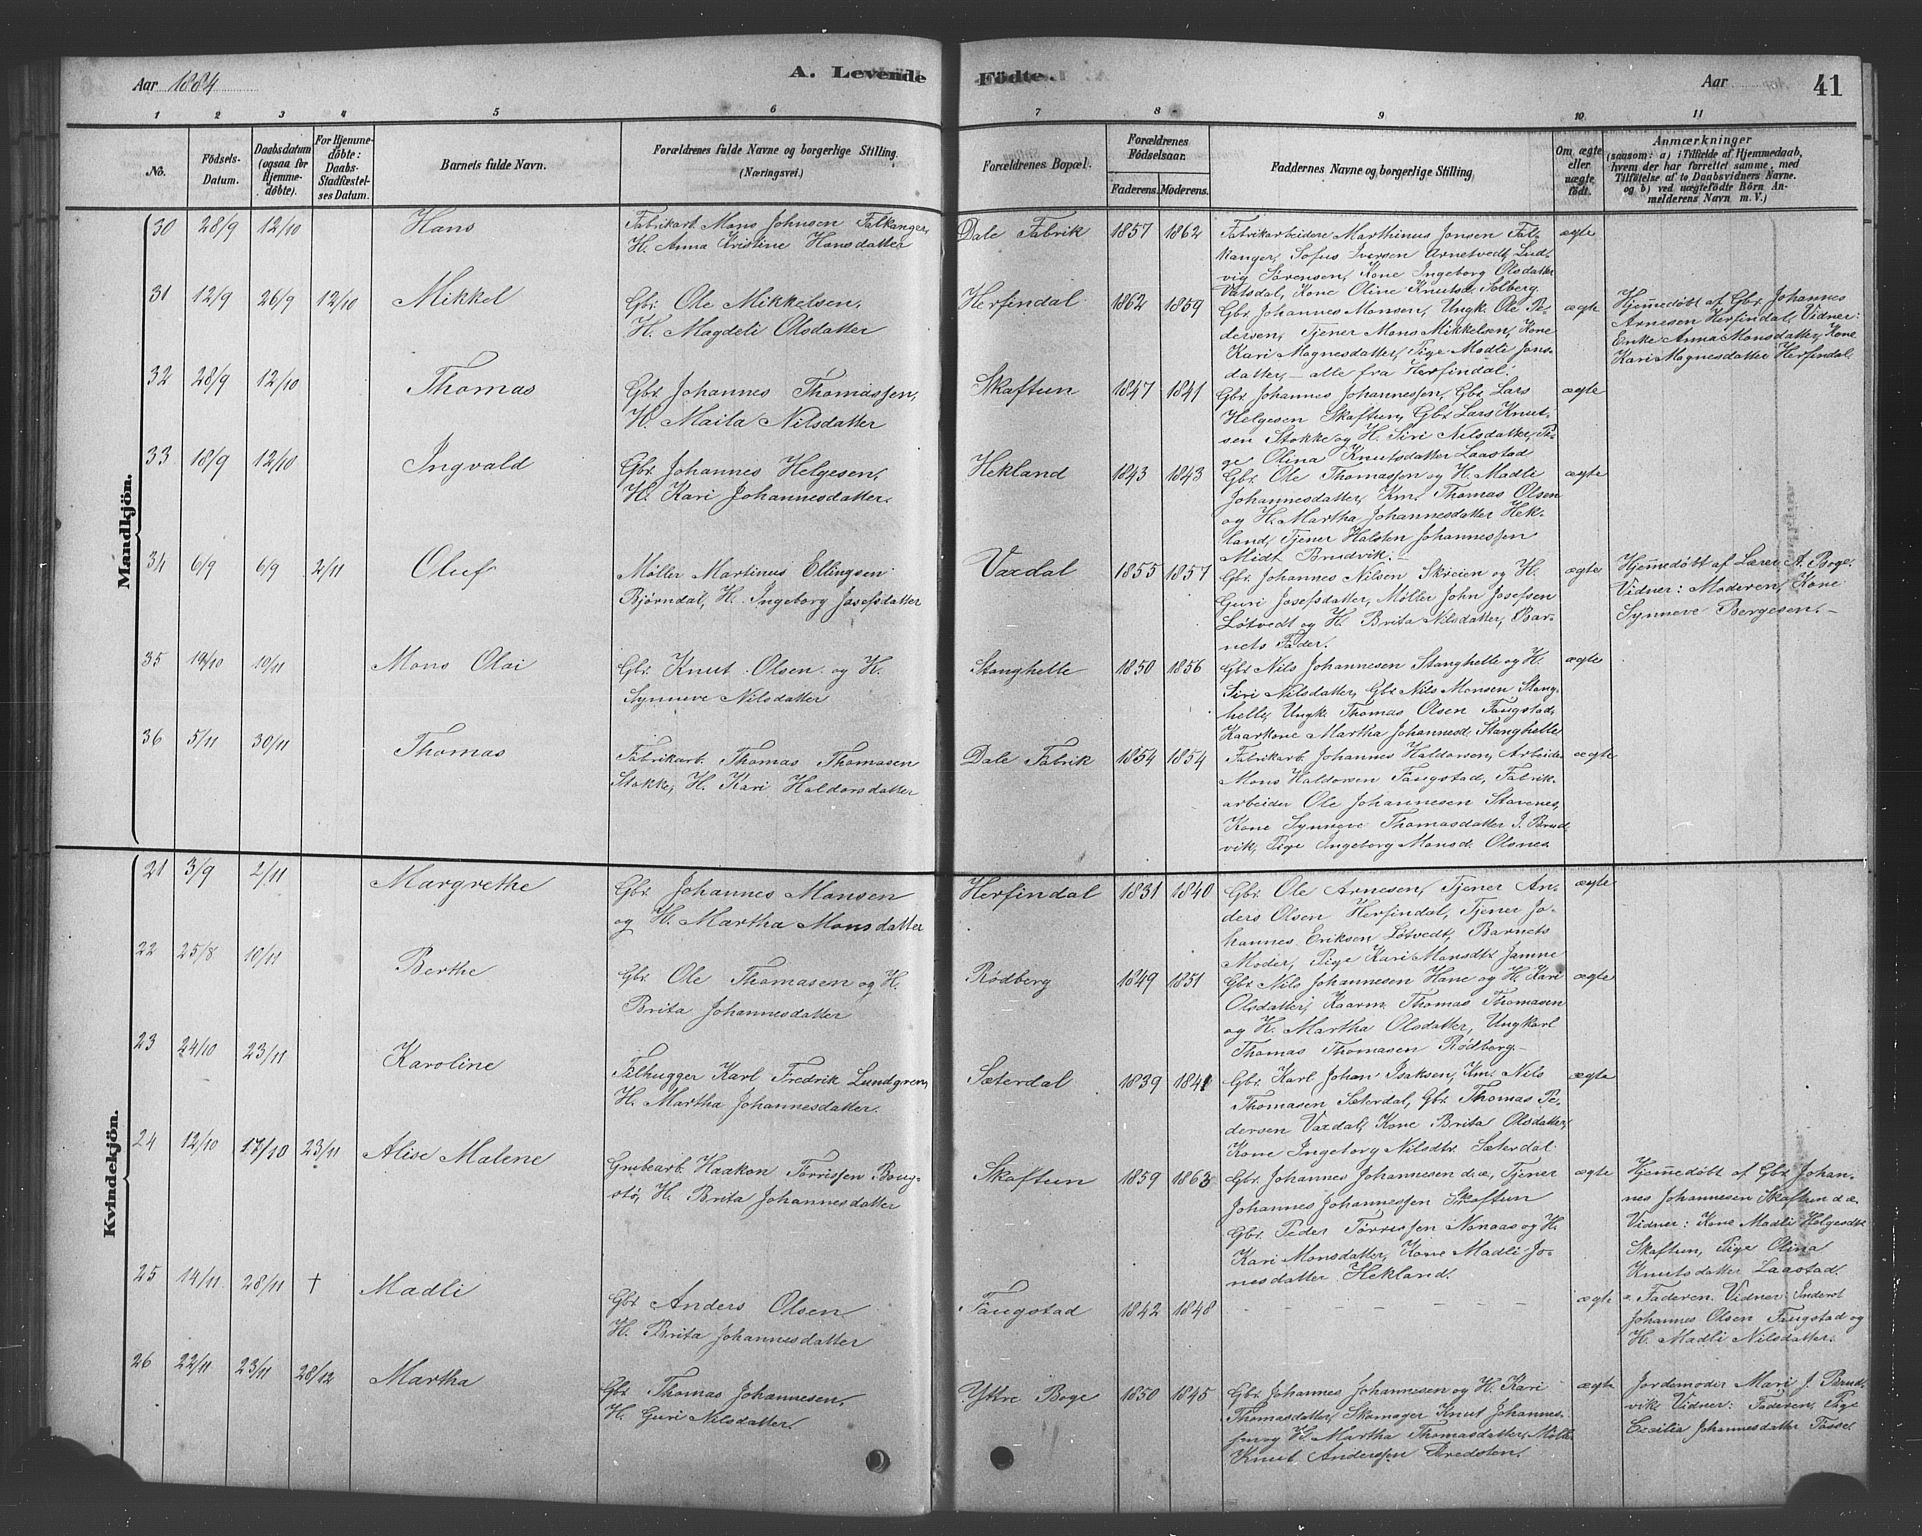 Aar 1884
A. Levende
Födte.
Aar
41
1 2 3 4 5 6 7 8 9 10 11
No.
Födsels-Datum.
Daabsdatum (ogsaa for Hjemme-döbte).
For Hjemme-döbte: Daabs-Stadfæstel-ses Datum.
Barnets fulde Navn.
Forældrenes fulde Navne og borgerlige Stilling. (Næringsvei.)
Forældrenes Bopæl.
Forældrenes Födselsaar.
Faderens. Moderens.
Faddernes Navne og borgerlige Stilling.
Om ægte eller uægte födt.
Anmærkninger
(saasom: a) i Tilfælde af Hjemmedaab,
hvem der har forrettet samme, med
Tilföielse af to Daabsvidners Navne.
og b) ved uægtefödte Börn An-
melderens Navn m. V.)
Mandkjön.
30 28/9 12/10 Hans
Fabrikarb. Mons Johnsen Falkanger,
H. Anna Kristine Hansdatter
Dale Fabrik 1857 1862
Fabrikarbeidere Marthinus Jonsen Fal-
kanger, Sofus Iversen Arnetvedt, Lud-
vig Sørensen, Kone Ingeborg Olsdatter
Vatsdal, Kone Oline Knutsd. Solberg.
ægte
31 12/9 26/9 12/10 Mikkel
Gbr. Ole Mikkelsen,
H. Magdeli Olsdatter
Herfindal 1862 1859
Gbr. Johannes Monsen, Ungk. Ole Pe-
dersen, Tjener Mons Mikkelsen, Kone
Kari Magnesdatter, Pige Madli Jons-
datter, – alle fra Herfindal.
ægte
Hjemedøbt af Gbr. Johannes
Arnesen Herfindal, Vidner:
Enke Anna Monsdatter, Kone
Kari Magnesdatter Herfindal.
32 28/9 12/10 Thomas
Gbr. Johannes Thomassen,
H. Maila Nilsdatter
Skaftun 1847 1841
Gbr. Johannes Johannessen, Gbr. Lars
Helgesen Skaftun, Gbr. Lars Knut-
sen Stokke og H. Siri Nilsdatter, Pi-
ge Olina Knutsdatter Laastad
ægte
33 18/9 12/10 Ingvald
Gbr. Johannes Helgesen,
H. Kari Johannesdatter.
Hekland 1843 1843
Gbr. Ole Thomassen og H. Madli
Johannesdatter, Km. Thomas Olsen
og H. Martha Johannesdatter Hek-
land, Tjener Halsten Johannessen
Midt Brudvik. –
ægte
34 6/9 6/9 2/11 Oluf
Møller Martinus Ellingsen
Bjørndal, H. Ingeborg Josefsdatter
Vaxdal 1855 1857
Gbr. Johannes Nilsen Skreien og H.
Guri Josefsdatter, Møller John Josefsen
Løtvedt og H. Brita Nilsdatter, Bar-
nets Fader.
ægte
Hjemedøbt af Lærer A. Boge.
Vidner: Moderen, Kone
Synneve Bergesen. –
35 19/10 10/11 Mons Olai
Gbr. Knut Olsen og H.
Synneve Nilsdatter
Stanghelle 1850 1856
Gbr. Nils Johannesen Stanghelle og H.
Siri Nilsdatter, Gbr. Nils Monsen Stang-
helle, Ungk. Thomas Olsen Faugstad,
Kaarkone Martha Johannesd. Stanghelle
ægte
36 5/11 30/11 Thomas
Fabrikarb. Thomas Thomasen
Stokke, H. Kari Haldorsdatter
Dale Fabrik 1854 1854
Fabrikarb. Johannes Haldorsen, Arbeider
Mons Haldorsen Faugstad, Fabrik-
arbeider Ole Johannesen Stavenes,
Kone Synneve Thomasdatter I. Brud
vik, Pige Ingeborg Monsd. Olsnes
ægte
Kvindekjön.
21 3/9 2/11 Margrethe
Gbr. Johannes Monsen
og H. Martha Monsdatter
Herfindal 1831 1840
Gbr. Ole Arnesen, Tjener An-
ders Olsen Herfindal, Tjener Jo-
hannes Eriksen Løtvedt, Barnets
Moder, Pige Kari Monsdtr. Jamne
ægte
22 25/8 10/11 Berthe
Gbr. Ole Thomasen og H.
Brita Johannesdatter
Rødberg 1849 1851
Gbr. Nils Johannesen Hane og H. Kari
Olsdatter, Kaarm. Thomas Thomasen
og H. Martha Olsdatter, Ungkarl
Thomas Thomasen Rødberg –
ægte
23 24/10 23/11 Karoline
Fælhugger Karl Fredrik Lundgren,
H. Martha Johannesdatter.
Sæterdal 1839 1841
Gbr. Karl Johan Isaksen, Km. Nils
Thomasen Sæterdal, Gbr. Thomas Pe-
dersen Vaxdal, Kone Brita Olsdatter,
Kone Ingeborg Nilsdtr. Sæterdal
ægte
24 12/10 17/10 23/11 Alise Malene
Grubearb. Haaken Torrissen Boug-
stø, H. Brita Johannesdatter
Skaftun 1859 1863
Gbr. Johannes Johannesen d.æ., Tjener
Johannes Johannessen Skaftun
Gbr. Peder Torressen Nonaas og H.
Kari Monsdatter, Kone Madli Jo-
nesdatter Hekland.
ægte
Hjemedøbt af Gbr. Johan-
nes Johannesen Skaftun d.æ.
Vidner: Kone Madli Helgesdtr
Skaftun, Pige Olina
Knutsdatter Laastad.
25 14/11 28/11 † Madli
Gbr. Anders Olsen
H. Brita Johannesdatter
Faugstad 1842 1848
– – – – – –
ægte
Faderen. Vidner: Inderst
Johannes Olsen Faugstad og
H. Madli Nilsdatter.
26 22/11 23/11 28/12 Martha
Gbr. Thomas Johannesen,
H. Guri Nilsdatter.
Yttre Boge 1850 1845
Gbr. Johannes Johannesen og H. Kari
Thomasdatter, Skomager Knut Johannes-
sen og H. Martha Thomasdatter, Møller
Knut Anderssen Bredsten.
ægte
Jordemoder Mari J. Brud-
vik Vidner: Faderen, Pige
Cecilia Johannesdatter Tøssel